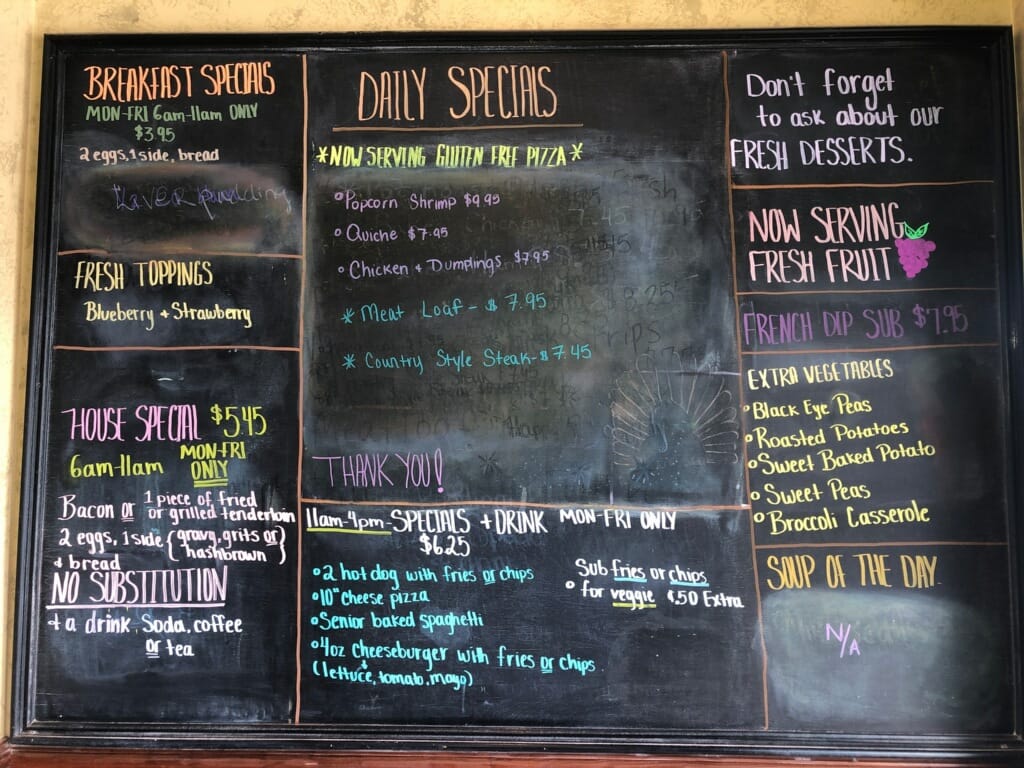 BREAKFAST SPECIALS
MON-FRI 6am-11am ONLY
$3.95
2 eggs, 1 side, bread
LaVER pudding
FRESH TOPPINGS
Blueberry + Strawberry
HOUSE SPECIAL $5.45
6am-11am MON-FRI
ONLY
Bacon or 1 piece of fried
or grilled tenderloin
2 eggs, 1 side {gravy, grits or
hashbrown}
+ bread
NO SUBSTITUTION
+ a drink, Soda, coffee
or tea
DAILY SPECIALS
*NOW SERVING GLUTEN FREE PIZZA*
Popcorn Shrimp $9.95
Quiche $7.95
Chicken + Dumplings $7.95
* Meat Loaf - $ 7.95
* Country Style Steak - $7.45
THANK YOU!
11am-4pm-SPECIALS + DRINK MON-FRI ONLY
$6.25
2 hot dog with fries or chips
10" cheese pizza
Senior baked spaghetti
4oz cheeseburger with fries or chips
(lettuce, tomato, mayo)
Sub fries or chips
for veggie $.50 Extra
Don't forget
to ask about our
FRESH DESSERTS.
NOW SERVING
FRESH FRUIT
FRENCH DIP SUB $7.95
EXTRA VEGETABLES
Black Eye Peas
Roasted Potatoes
Sweet Baked Potato
Sweet Peas
Broccoli Casserole
SOUP OF THE DAY
N/A